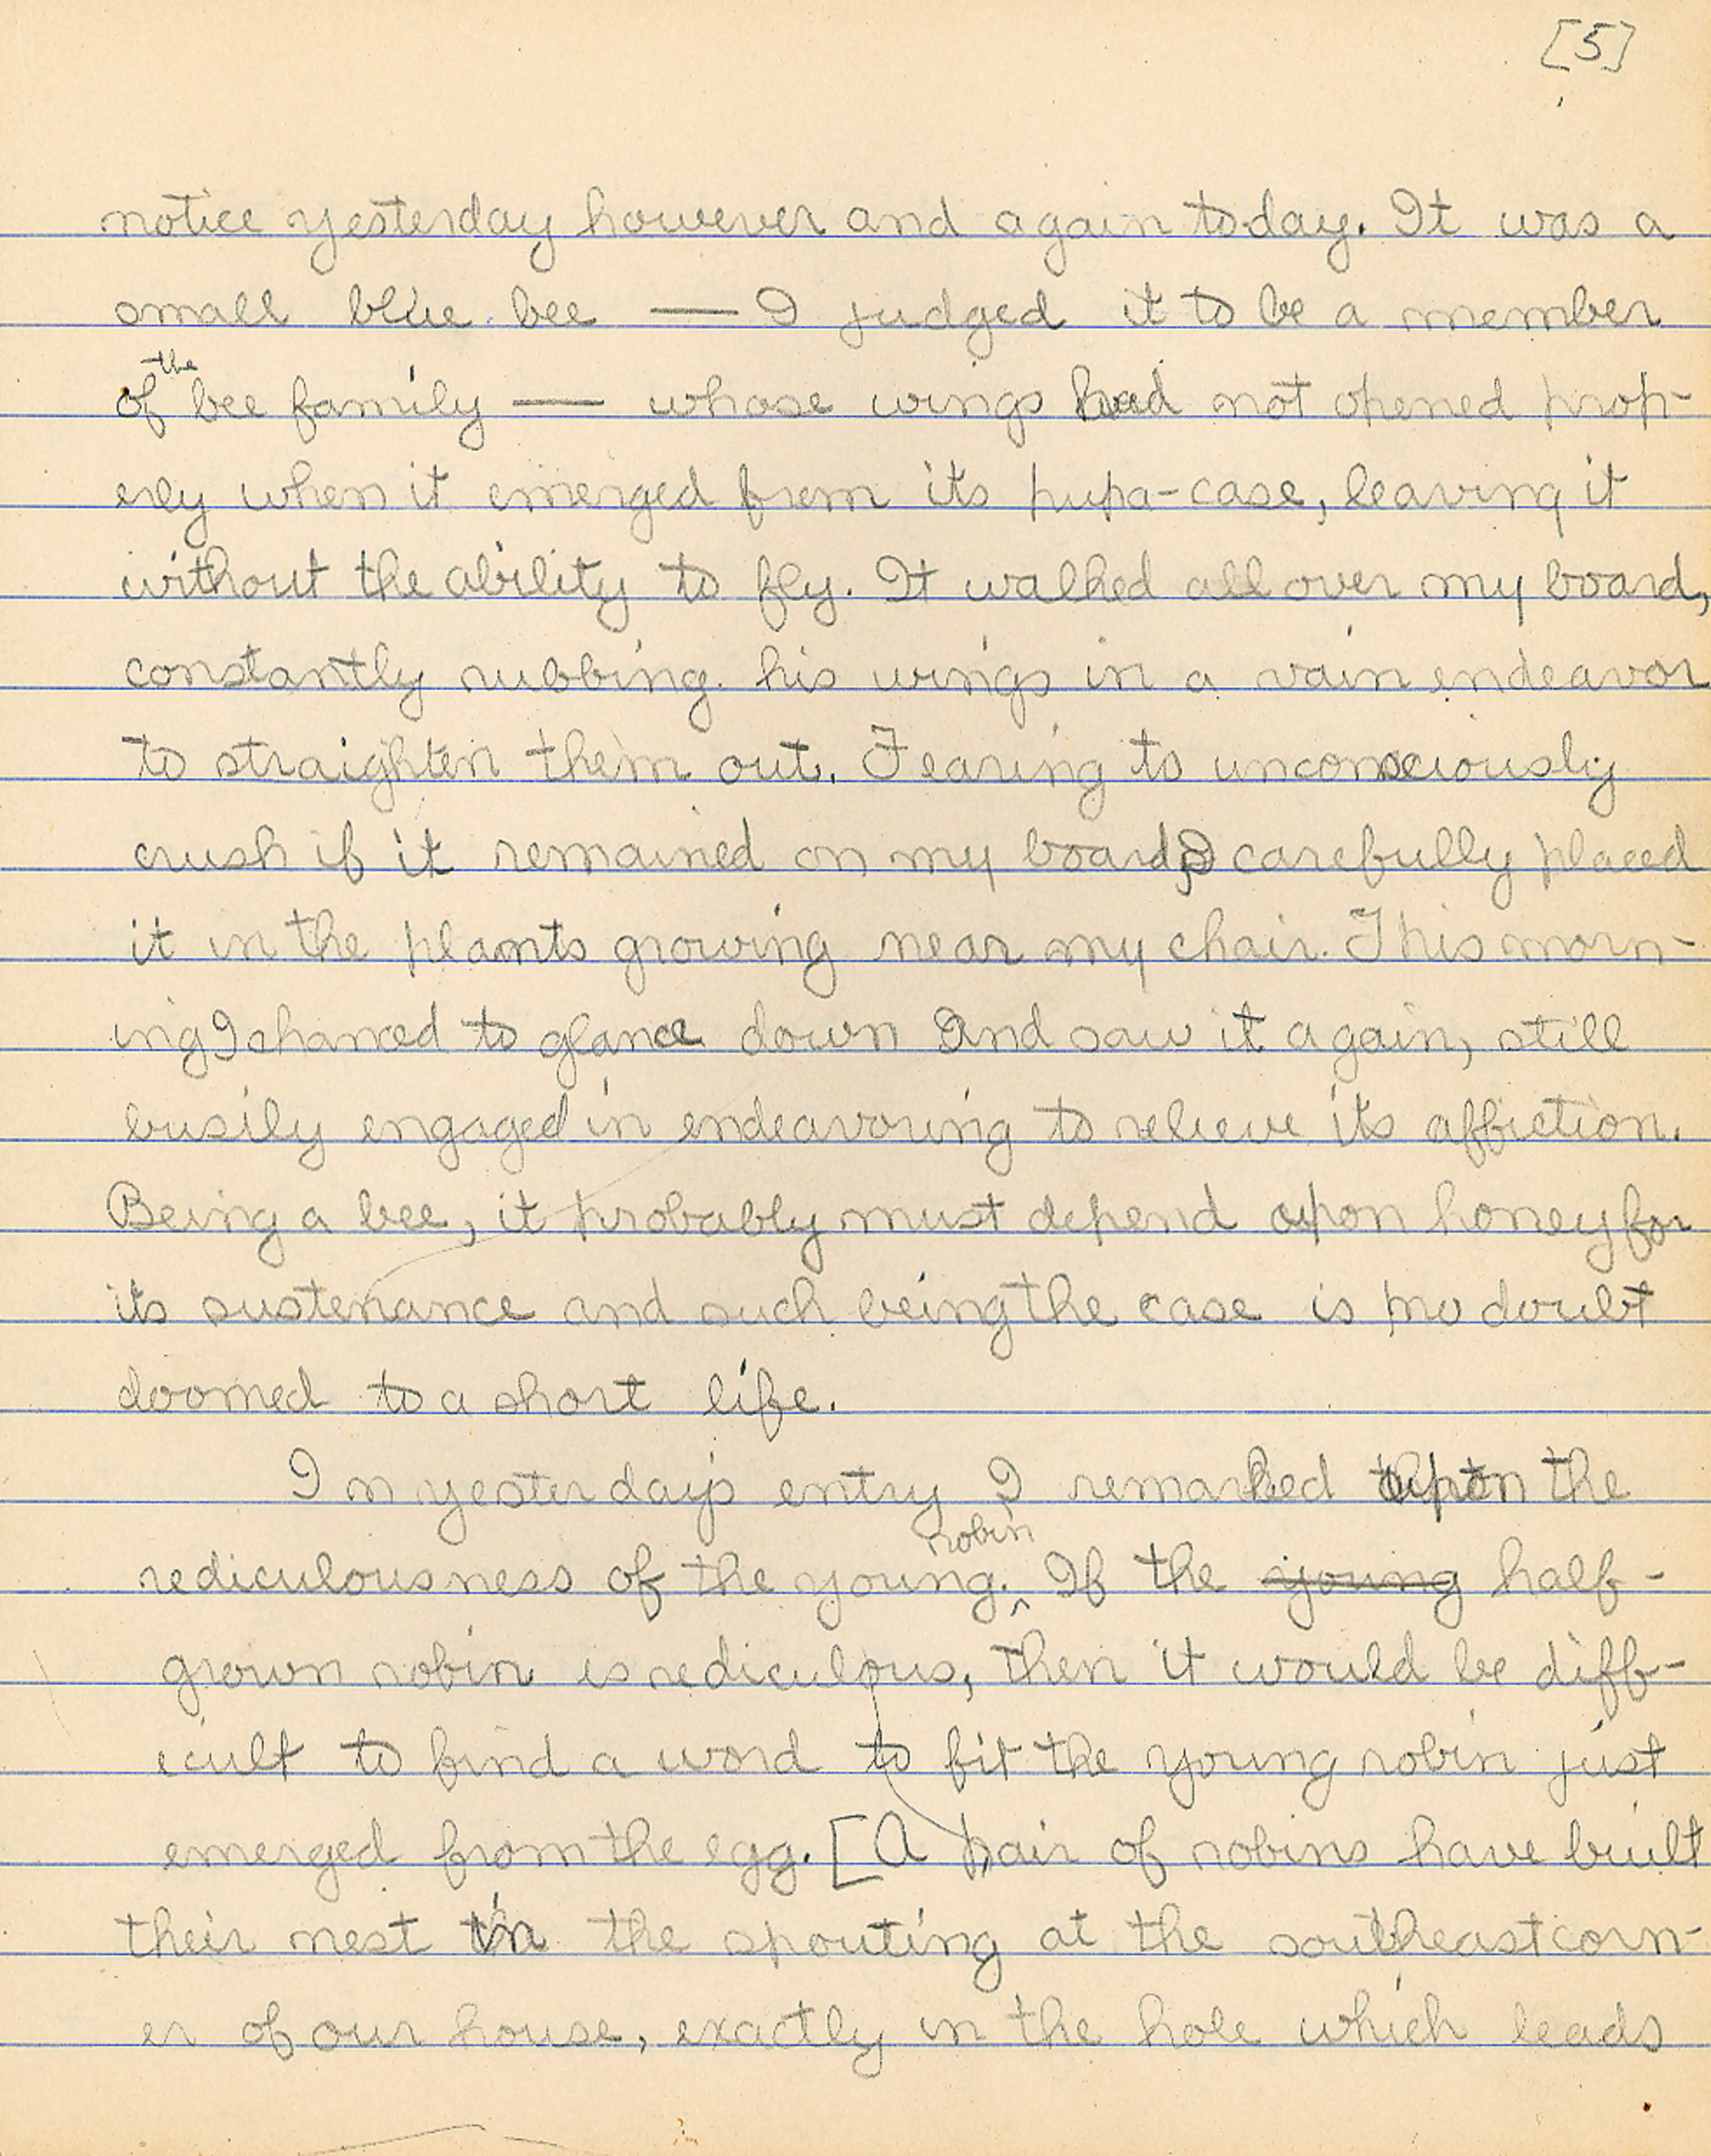 [5]
notice yesterday however and again today. It was a
small blue bee — I judged it to be a member
of the bee family — whose wings had not opened prop-
erly when it emerged from its pupa-case, leaving it
without the ability to fly. It walked all over my board,
constantly rubbing his wings in a vain endeavor
to straighten them out. Fearing to unconsciously
crush if it remained on my board, I carefully placed
it in the plants growing near my chair. This morn-
ing I chanced to glance down and saw it again, still
busily engaged in endeavoring to relieve its affiction.
Being a bee, it probably must depend upon honey for
its sustenance and such being the case is no doubt
doomed to a short life.
In yesterday's entry I remarked upon the
rediculousness of the young robin. If the young half-
grown robin is rediculous, then it would be diff-
icult to find a word to fit the young robin just
emerged from the egg. [A pair of robins have built
their nest in the spouting at the southeast corn-
er of our house, exactly in the hole which leads